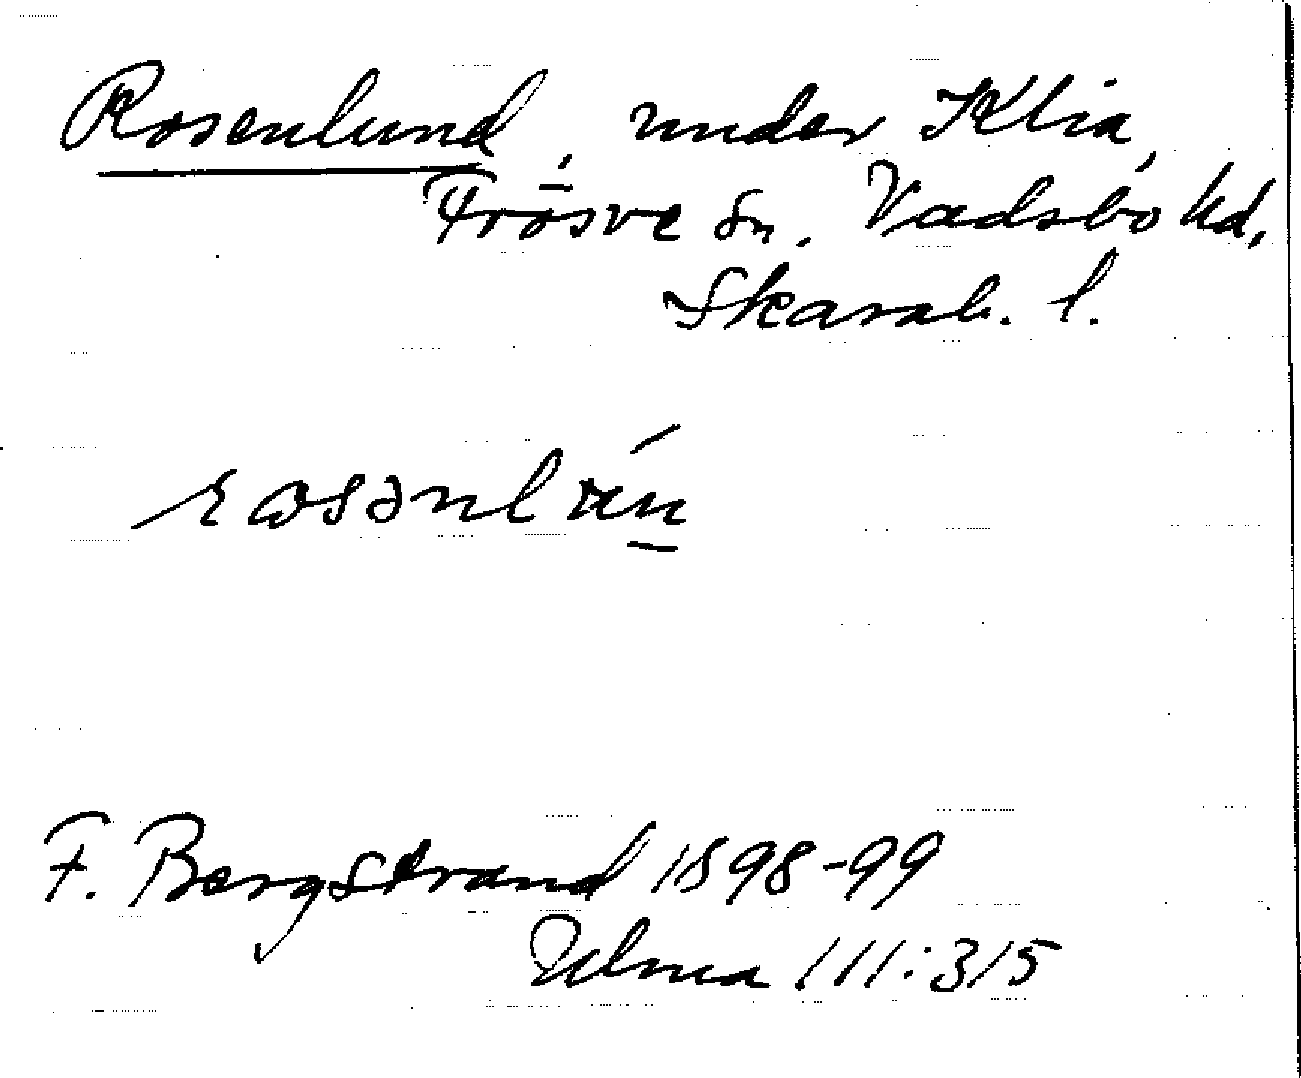 Rosenlund, under Klia,
Frösve sn. Vadsbo hd,
Skarab. l.
rosənlun
F. Bergstrand 1898-99
Ulma 111:315